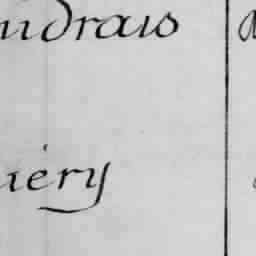 udrais
iéry